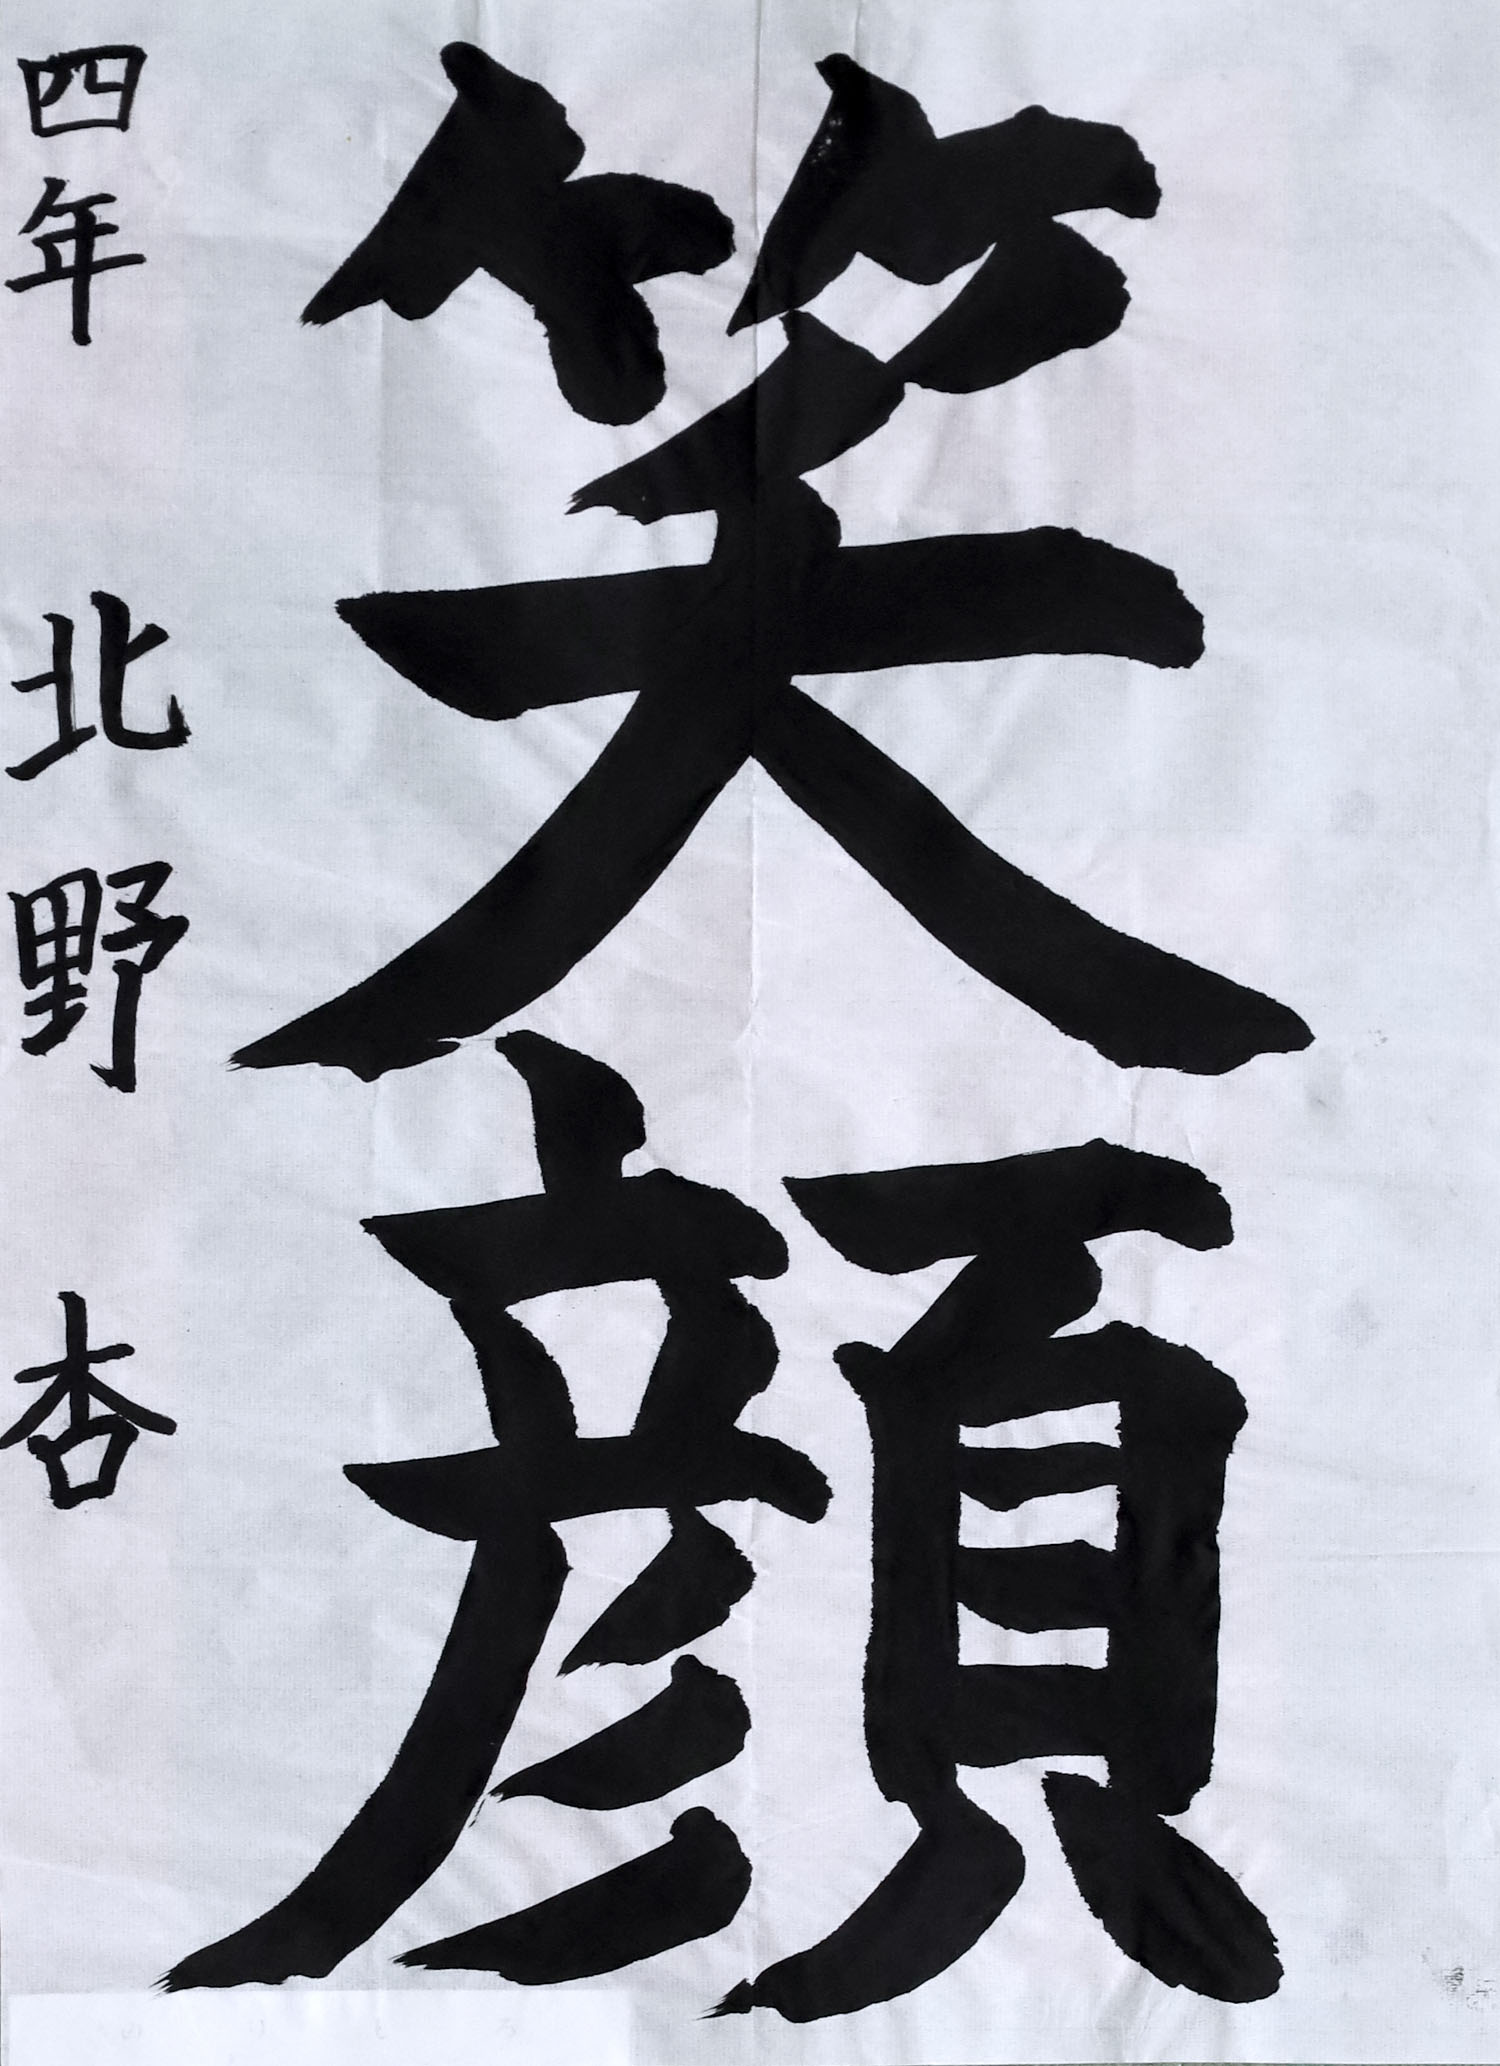 笑顔
四年 北野 杏